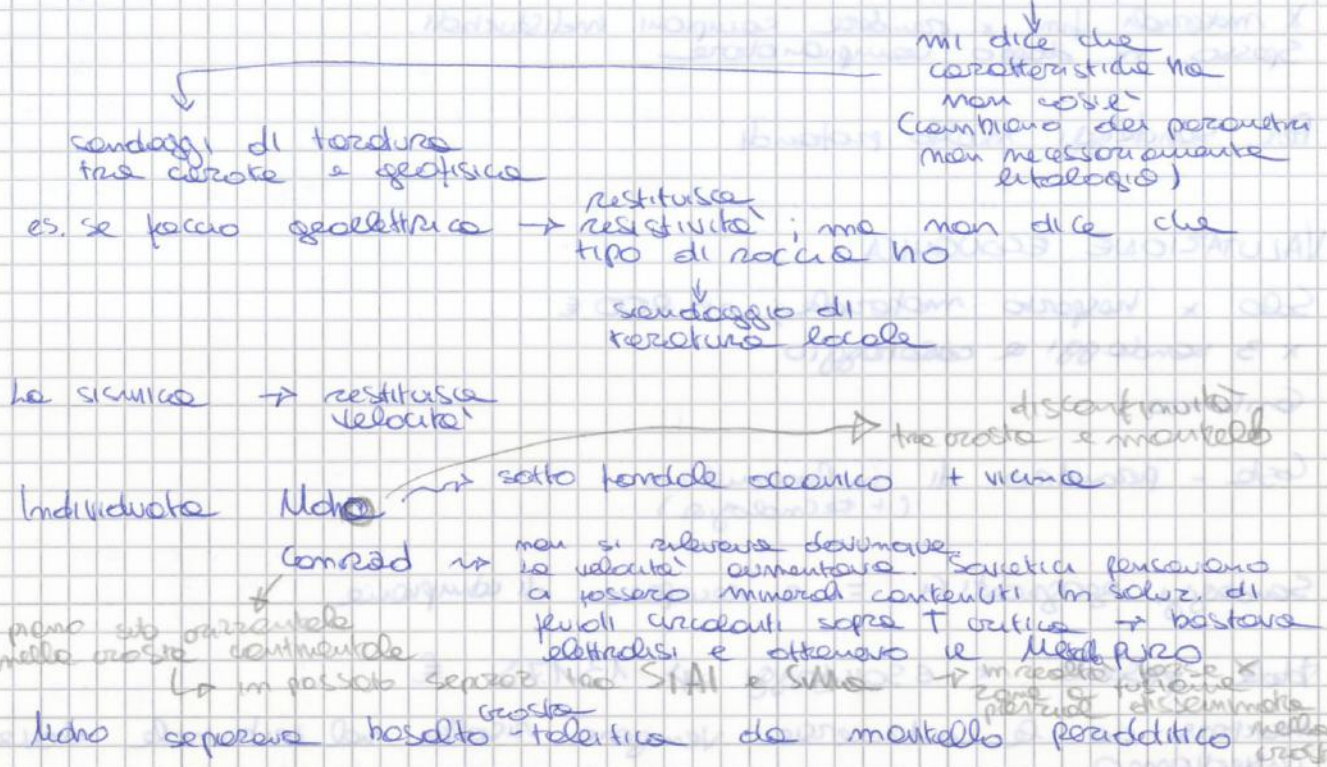 mi dice che
caratteristiche ha
non cos'è
(cambiano dei parametri
non necessariamente
litologia)
sondaggi di taratura
tra carote e geofisica
es. se faccio geoelettrica → restituisce
resistività; ma non dice che
tipo di roccia ho
sondaggio di
taratura locale
La sismica → restituisce
velocità
discontinuità
tra crosta e mantello
Individuata Moho → sotto fondale oceanico + vicina
Conrad → non si rilevava dovunque
la velocità aumentava. Sovietici pensavano
ci fossero minerali contenuti in soluz. di
fluidi circolanti sopra T critica → bastava
elettrolisi e ottenevo il Metal puro
piano sub orizzontale
nella crosta continentale
↳ in passato separaz tra SIAl e SIMa → in realtà forse x
zone a fusione
parziale disseminate
nella
crosta
Moho separava basalto toleitico da mantello peridotitico
crosta